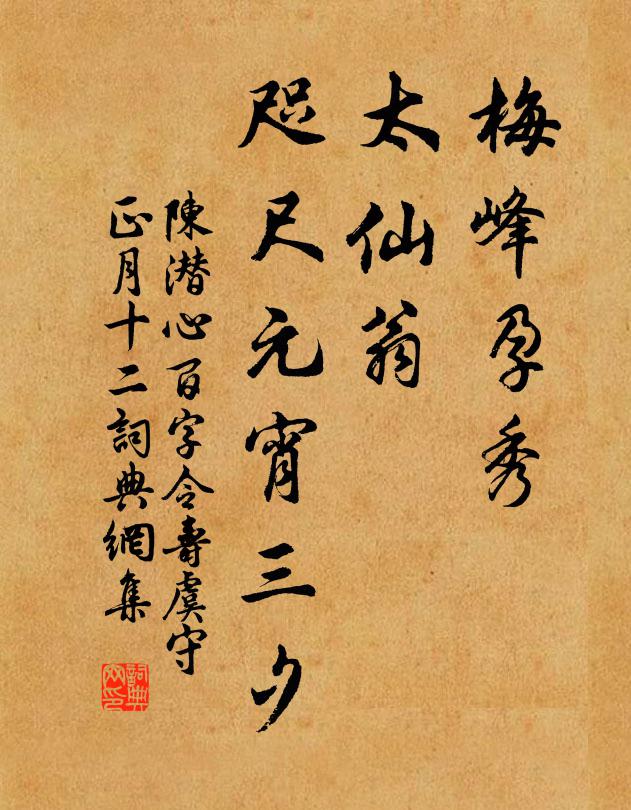 梅峰孕秀
太仙翁
咫尺元宵三夕
陳潛心百字令壽虞守
正月十二詞典網集
詞典網印